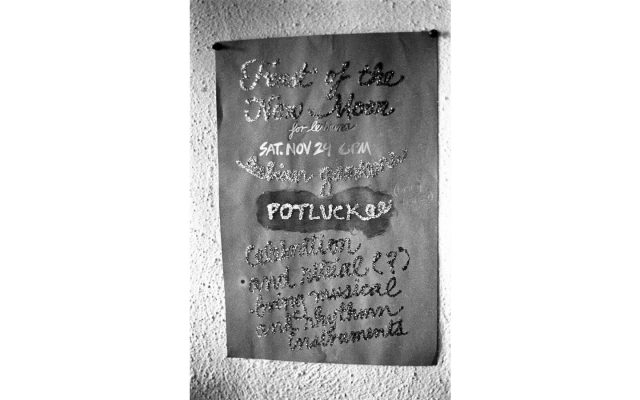 Feast of the
New Moon
for lesbians
SAT. NOV 24 6PM
POTLUCK
Celebration
and ritual (?)
bring musical
and rhythm
instruments